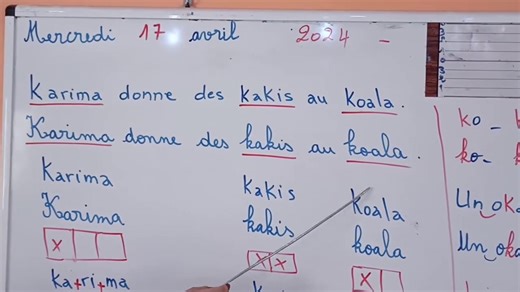 Mercredi 17 avril 2024 -
Karima donne des kakis au Koala.
Karima donne des kakis au koala.
Karima kakis koala
Karima kakis koala
x x x x
ka+ri+ma
ko -
ko-
Un oka
Un oka